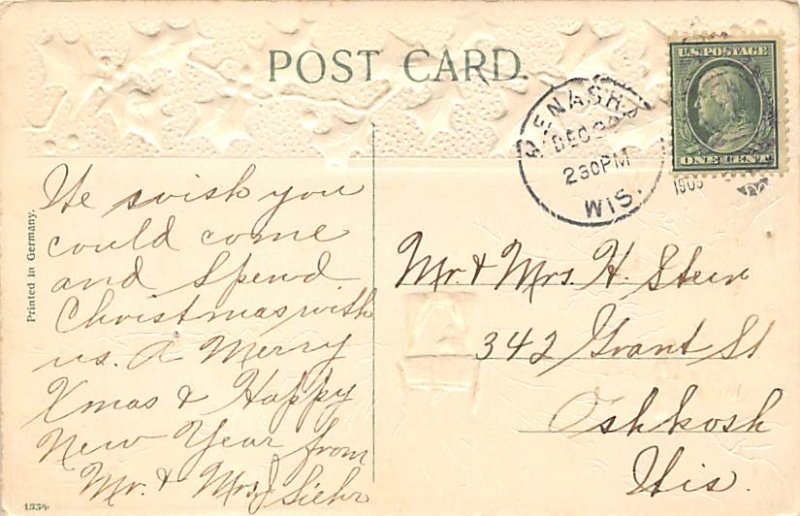 POST CARD.
MENASHA
DEC 2
230PM
WIS.
1909
U.S. POSTAGE
ONE CENT
Printed in Germany.
We wish you
could come
and Spend
Christmas with
us. A Merry
Xmas & Happy
New Year from
Mr. & Mrs J Siehr
Mr. & Mrs. H. Stein
342 Grant St
Oshkosh
Wis.
1534